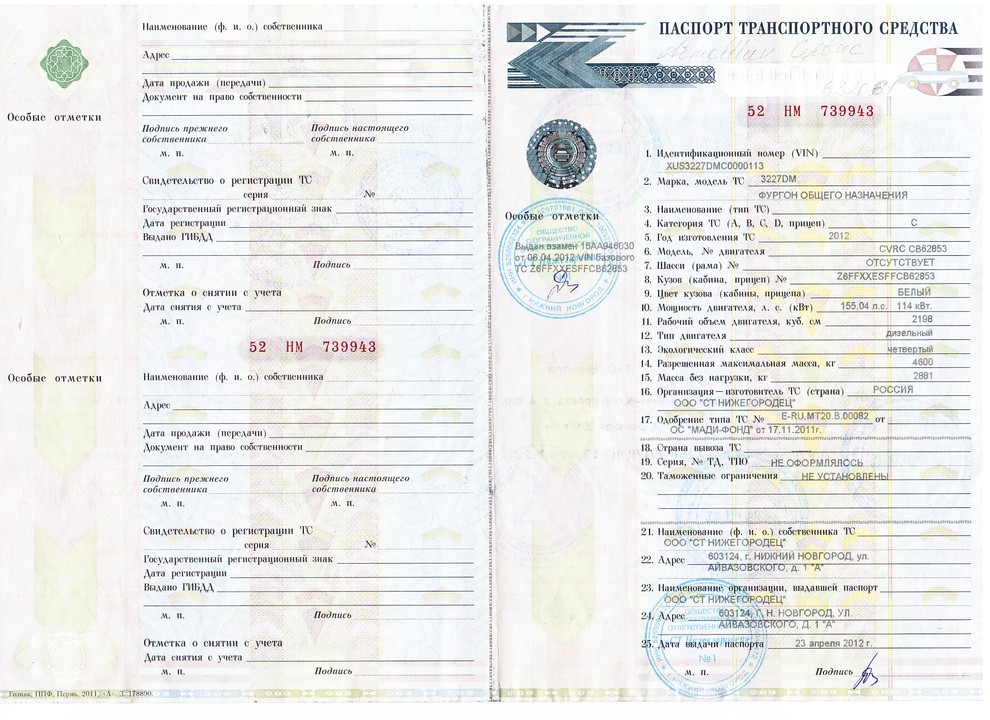 Наименование (ф. и. о.) собственника
Адрес
Дата продажи (передачи)
Документ на право собственности
Особые отметки
Подпись прежнего собственника
Подпись настоящего собственника
м. п.
м. п.
Свидетельство о регистрации ТС
серия №
Государственный регистрационный знак
Дата регистрации
Выдано ГИБДД
м. п. Подпись
Отметка о снятии с учета
Дата снятия с учета
м. п. Подпись
52 НМ 739943
Особые отметки
Наименование (ф. и. о.) собственника
Адрес
Дата продажи (передачи)
Документ на право собственности
Подпись прежнего собственника
Подпись настоящего собственника
м. п.
м. п.
Свидетельство о регистрации ТС
серия №
Государственный регистрационный знак
Дата регистрации
Выдано ГИБДД
м. п. Подпись
Отметка о снятии с учета
Дата снятия с учета
м. п. Подпись
Гознак, ППФ, Пермь, 2011, «А». З. 178890.
ПАСПОРТ ТРАНСПОРТНОГО СРЕДСТВА
52 НМ 739943
Особые отметки
Выдан взамен 16АА946030
от 06.04.2012 VIN базового
ТС Z6FFXXESFFCB62853
1. Идентификационный номер (VIN)
XUS3227DMC0000113
2. Марка, модель ТС 3227DM
ФУРГОН ОБЩЕГО НАЗНАЧЕНИЯ
3. Наименование (тип ТС)
4. Категория ТС (А, В, С, D, прицеп) С
5. Год изготовления ТС 2012
6. Модель, № двигателя CVRC CB62853
7. Шасси (рама) № ОТСУТСТВУЕТ
8. Кузов (кабина, прицеп) № Z6FFXXESFFCB62853
9. Цвет кузова (кабины, прицепа) БЕЛЫЙ
10. Мощность двигателя, л. с. (кВт) 155,04 л.с. 114 кВт.
11. Рабочий объем двигателя, куб. см 2198
12. Тип двигателя дизельный
13. Экологический класс четвертый
14. Разрешенная максимальная масса, кг 4600
15. Масса без нагрузки, кг 2881
16. Организация—изготовитель ТС (страна) РОССИЯ
ООО "СТ НИЖЕГОРОДЕЦ"
17. Одобрение типа ТС № E-RU.MT20.B.00082 от
ОС "МАДИ-ФОНД" от 17.11.2011г.
18. Страна вывоза ТС
19. Серия, № ТД, ТПО НЕ ОФОРМЛЯЛОСЬ
20. Таможенные ограничения НЕ УСТАНОВЛЕНЫ
21. Наименование (ф. и. о.) собственника ТС
ООО "СТ НИЖЕГОРОДЕЦ"
22. Адрес 603124, г. НИЖНИЙ НОВГОРОД, ул.
АЙВАЗОВСКОГО, д. 1 "А"
23. Наименование организации, выдавшей паспорт
ООО "СТ НИЖЕГОРОДЕЦ"
24. Адрес 603124, Г. Н. НОВГОРОД, УЛ.
АЙВАЗОВСКОГО, Д. 1 "А"
25. Дата выдачи паспорта 23 апреля 2012 г.
м. п. Подпись